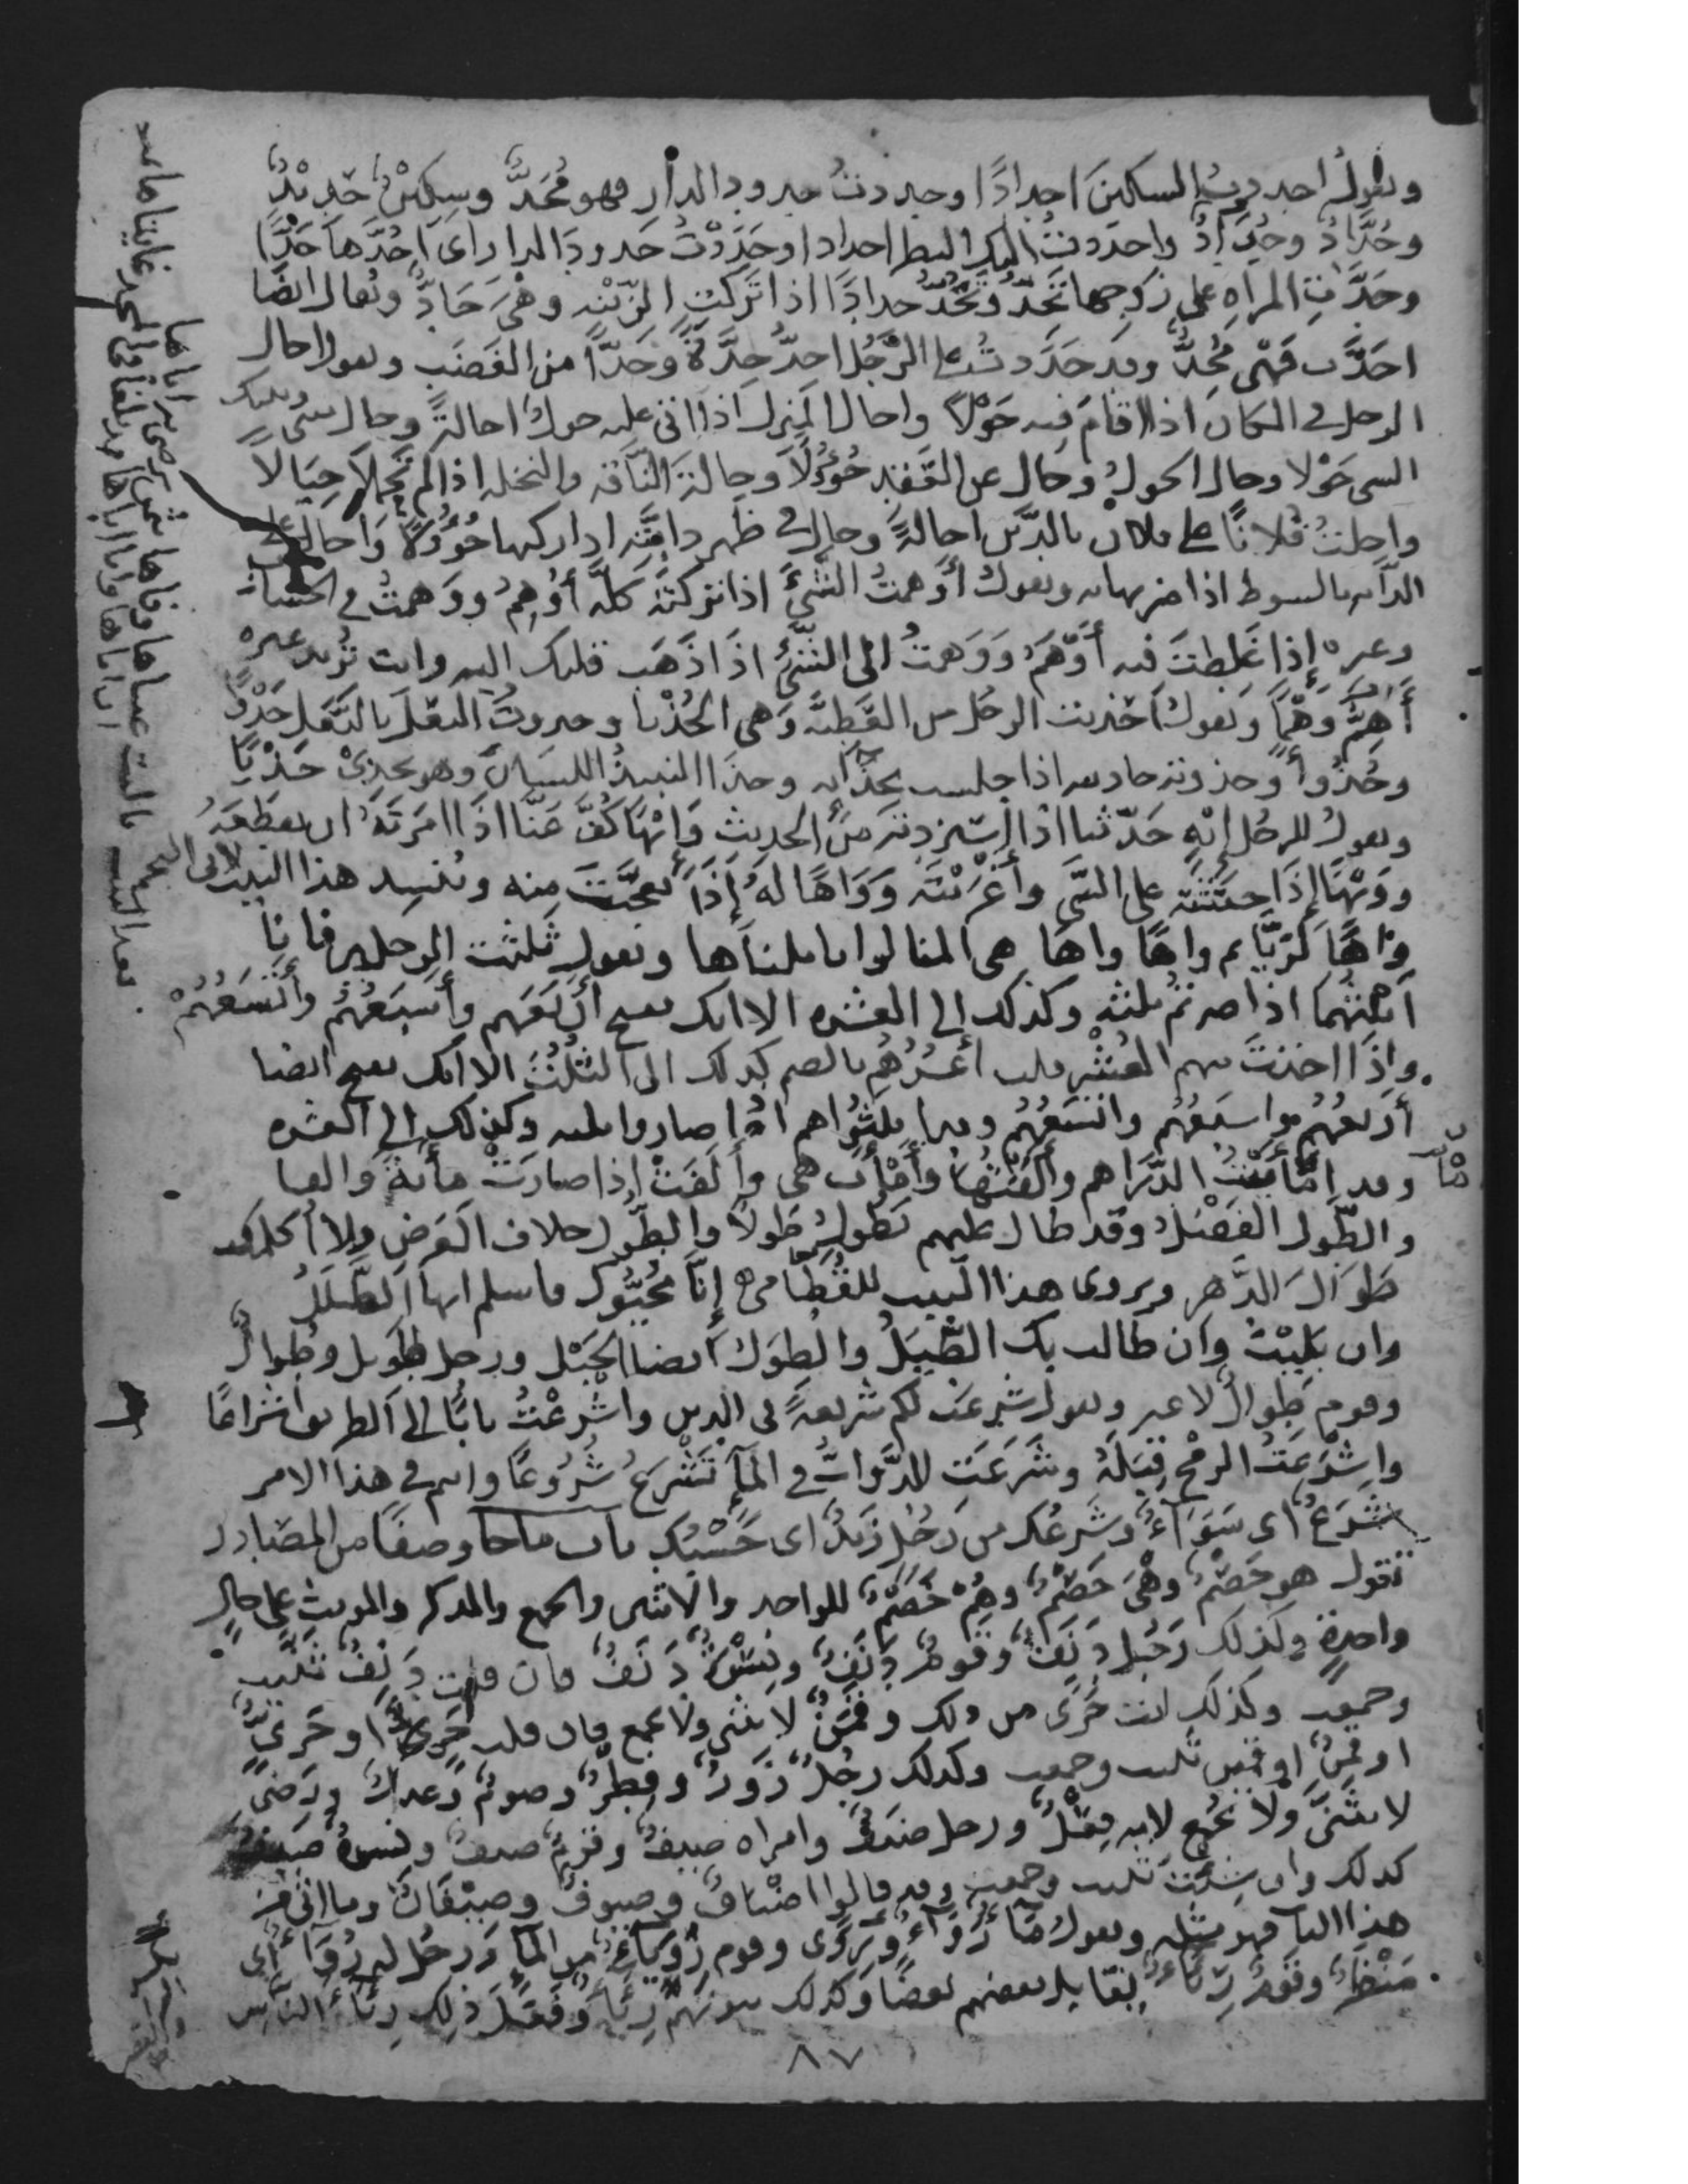 وتقول احددت السكين احدادًا وحددت حدود الدار فهو مُحَدٌّ وسِكينٌ حَدِيدٌ
وحُدَّادٌ وحُدَادٌ واحددت اليك النظر احدادا وحَدَدْتُ حدودَ الدار اى اَحُدّها حَدًّا
وحَدَّتِ المراه على زوجها تَحِدُّ وتَحُدُّ حدادًا اذا تركت الزينه وهْىَ حَادٌّ ويُقال ايضًا
احَدَّت فَهْى مُحِدٌّ وقد حَدَدتُ على الرَّجُل احِدُّ حِدَّةً وحَدًّا من الغَضَب وتقول احال
الرجل فى المكان اذا اقام فيه حَوْلًا واحال المنزل اذا اتى عليه حول احالةً وحال بينى وبينك
الشى حَوْلا وحال الحول وحَال عن العَهْدِ حُؤُولًا وحالتِ النَّاقه والنخله اذا لم تَحْمِل حِيَالًا
واحلتُ فُلانًا على فلان بالدَّين احالةً وحال فى ظهر دابَّتِه اذا ركبها حُؤُولًا واحال على
الدابه بالسوط اذا ضربها به وتقول أَوْهَمتُ الشَّىَ اذا تركتَهُ كلَّه أُوهِمُ ووَهِمتُ فى الحساب
وغيره إذا غَلِطتَ فيه أَوْهَمُ ووَهَمتُ الى الشَّىِ اذا ذَهَب قلبك اليه وانت تُريد غيره
أَهِمُ وَهْمًا وتقول احذيت الرجل من العَطِيَّه وهى الحُذْيا وحذوت النعل بالنَّعل حَذْوًا
وحُذُوا وحذوته حاذيته اذا جلست بحذائه وحذا النبيذُ اللسَان وهو يحذِى حَذْيًا
وتقول للرجُل اِيهٍ حَدّثنا اذا استزدته من الحديث وَاِيْهًا كُفَّ عَنَّا اذا امَرتَهُ ان يقطعَهُ
ووَيْهًا إذا حثثتَه على الشَّى وأَغْرَيْتَه ووَاهًا لَهُ إذَا تعجَّبتَ منه ويُنشِد هذا البيت لابى النجم
واهًا لرَيَّا ثم واهًا واها هى المنا لو اننا نلناها وتقول ثَلَثت الرجلين فانا
اَثلِثُهما اذا صرتم ثلثه وكذلك الى العشره الا انك تفتح أَرْبَعُهم وأَسْبَعُهُم وأَتْسَعُهُمْ
واِذا اخذتَ منهم العُشْر قلت أعشُرُهُم بالضم كذلك الى الثُلُثِ الا انك تفتح ايضا
أَرْبَعُهُم واسبَعُهُم واتْسَعُهُم وقد اثلَثُوا هم اذا صاروا ثلثه وكذلك الى العشره
وقد أمْأَيْتُ الدَّرَاهم وآلَفْتُهَا وأَمْأَت هى وآلَفَتْ إذا صارَتْ مأئةً والفا
والطَّول الفَضْل وقد طال عليهم يَطُولُ طَولًا والطُّول خلاف العَرض ولا أكلمك
طَوَالَ الدَّهر ويروى هذا البيت للقُطَامى إِنَّا مُحَيُّوكَ فاسلم ايها الطَّلَلُ
وان بَلِيْتَ وان طالت بك الطِّيَلُ والطِوَل ايضا الحَبْل ورجل طَوِيل وطُوالٌ
وقوم طِوالٌ لا غير وتقول شَرَعتُ لكم شريعةً فى الدين واشْرَعْتُ بابًا الى الطريق اشراعًا
واشْرَعتُ الرمْح قِبَلَهُ وشَرَعَت الدَّوابُّ فى المآءِ تَشْرَعُ شُرُوعًا وانتم فى هذا الامر
شَرَعٌ اى سَوَآءٌ وشَرعُك من رَجُلٍ زيدٌ اى حَسْبُك باب ماجا وصفًا من المصَادر
تقول هو خَصْمٌ وهْىَ خَصْمٌ وهُمْ خَصْمٌ للواحد والاثنين والجمع والمذكر والمونث على حالٍ
واحدةٍ وكذلك رَجُل دَنَفٌ وقومٌ دَنَفٌ ونِسْوَةٌ دَنَفٌ فان قلت دَنِفٌ ثَنَّيت
وجمعت وكذلك انت حَرًى من ذلك وقَمَنٌ لا يثنى ولا يجمع فان قلت حَرٍ او حَرِىٌّ
او قَمِنٌ او قَمِين ثنيت وجمعت وكذلك رجُلٌ زَورٌ وفِطْرٌ وصومٌ وعدلٌ ورِضًى
لا يثَنَّى ولا يُجمع لانه فِعْلٌ ورجل ضَيفٌ وامراه ضيفٌ وقومٌ ضيفٌ ونسوةٌ ضيفٌ
كذلك وان شئتَ ثنيت وجمعت وقد قالوا اضيافٌ وضيوفٌ وضِيْفَانٌ وما اتى من
هذا الباب فهو مثله وتقول مآءٌ رَوَآءٌ ورِوًى وقوم رِوَاءٌ من المآءِ ورجُل له رُوَآءٌ أى
مَنْظَرٌ وقَومٌ رِئَاءٌ يقابل بعضهم بعضًا وكذلك بيوتهم رِئَاءٌ وفعَل ذلك رِئَاءَ النَّاس
٨٧